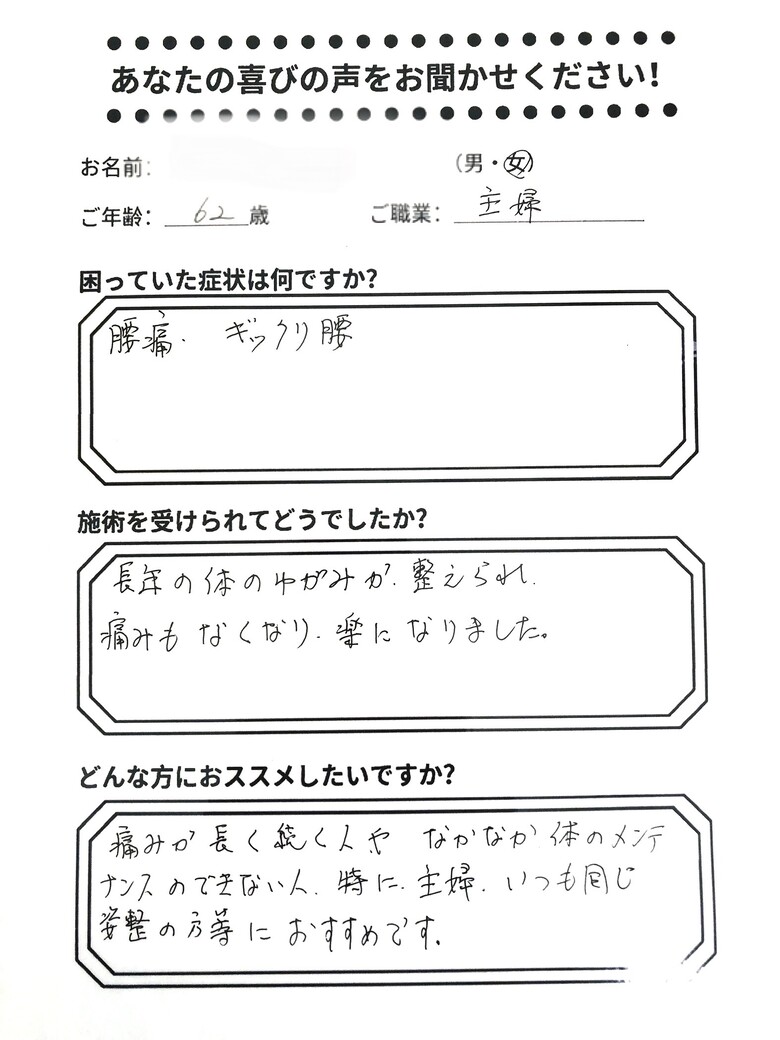 あなたの喜びの声をお聞かせください!
お名前: (男・女)
ご年齢: 62 歳 ご職業: 主婦
困っていた症状は何ですか?
腰痛. ギックリ腰
施術を受けられてどうでしたか?
長年の体のゆがみが、整えられ、
痛みもなくなり、楽になりました。
どんな方におススメしたいですか?
痛みが長く続く人や なかなか 体のメンテ
ナンスのできない人、特に、主婦、いつも同じ
姿整の方等におすすめです。